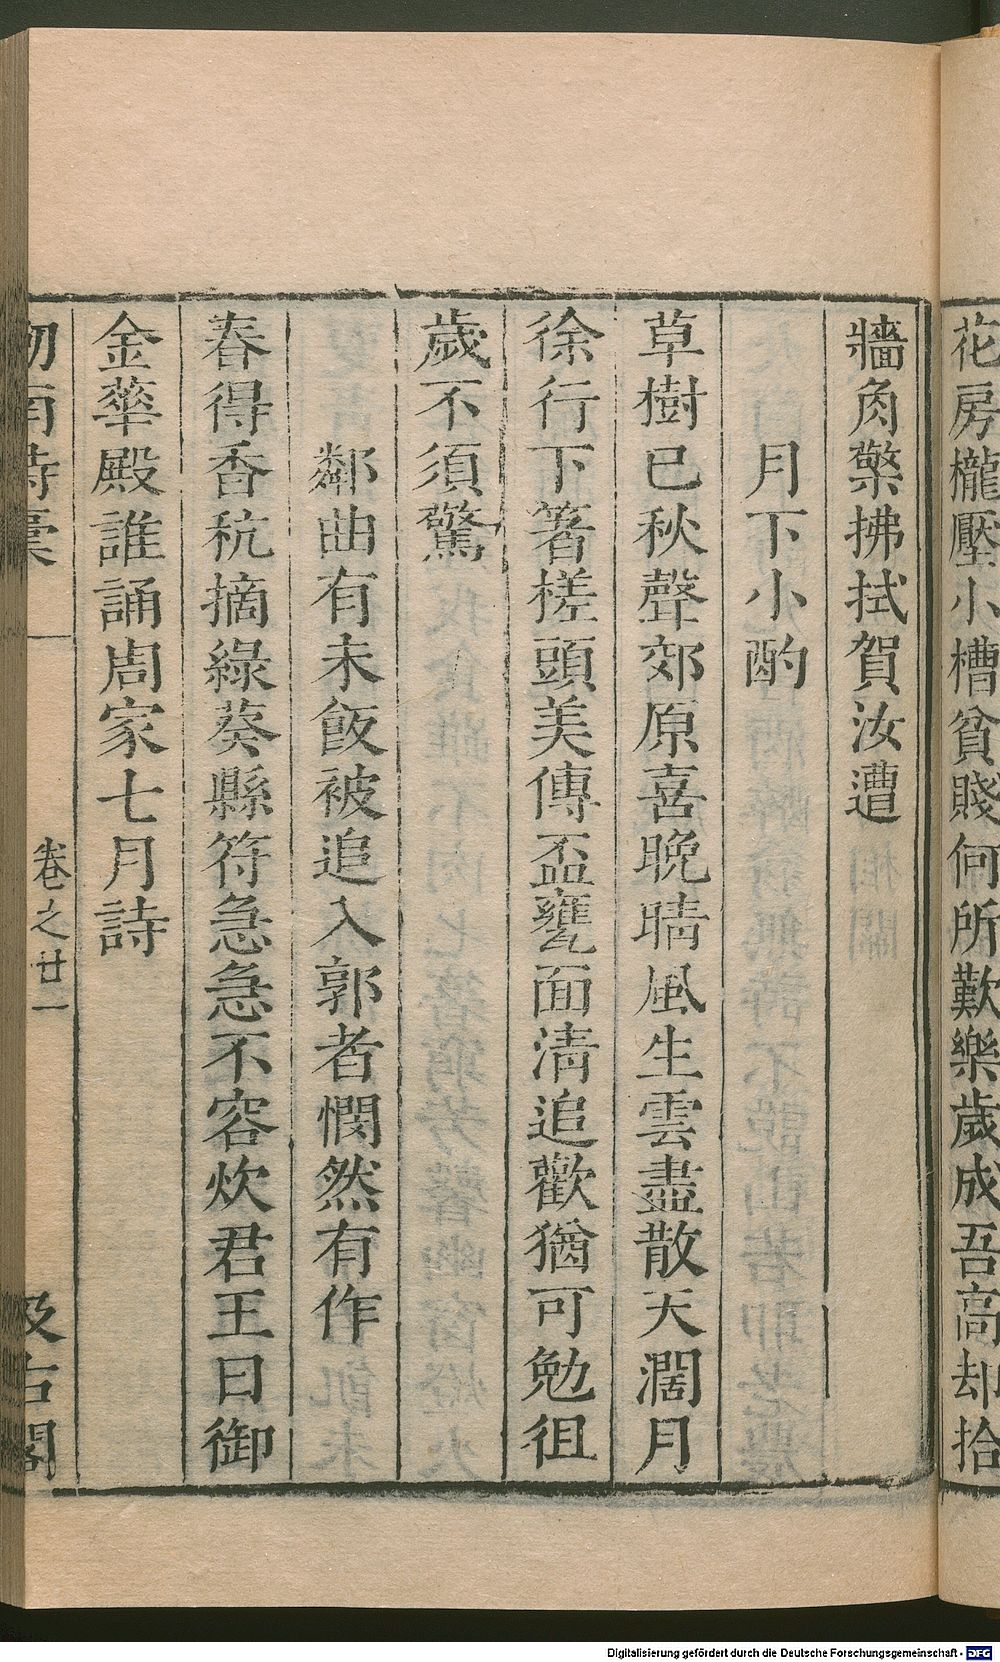 花房櫳壓小槽貧賤何所歎樂歲成吾高却拾
牆角檠拂拭賀汝遭
月下小酌
草樹已秋聲郊原喜晚晴風生雲盡散天濶月
徐行下箸槎頭美傳盃甕面清追歡猶可勉徂
歲不須驚
鄰曲有未飯被追入郭者憫然有作
春得香秔摘綠葵縣符急急不容炊君王日御
金華殿誰誦周家七月詩
劒南詩稾 卷之廿一 汲古閣
Digitalisierung gefördert durch die Deutsche Forschungsgemeinschaft - DFG